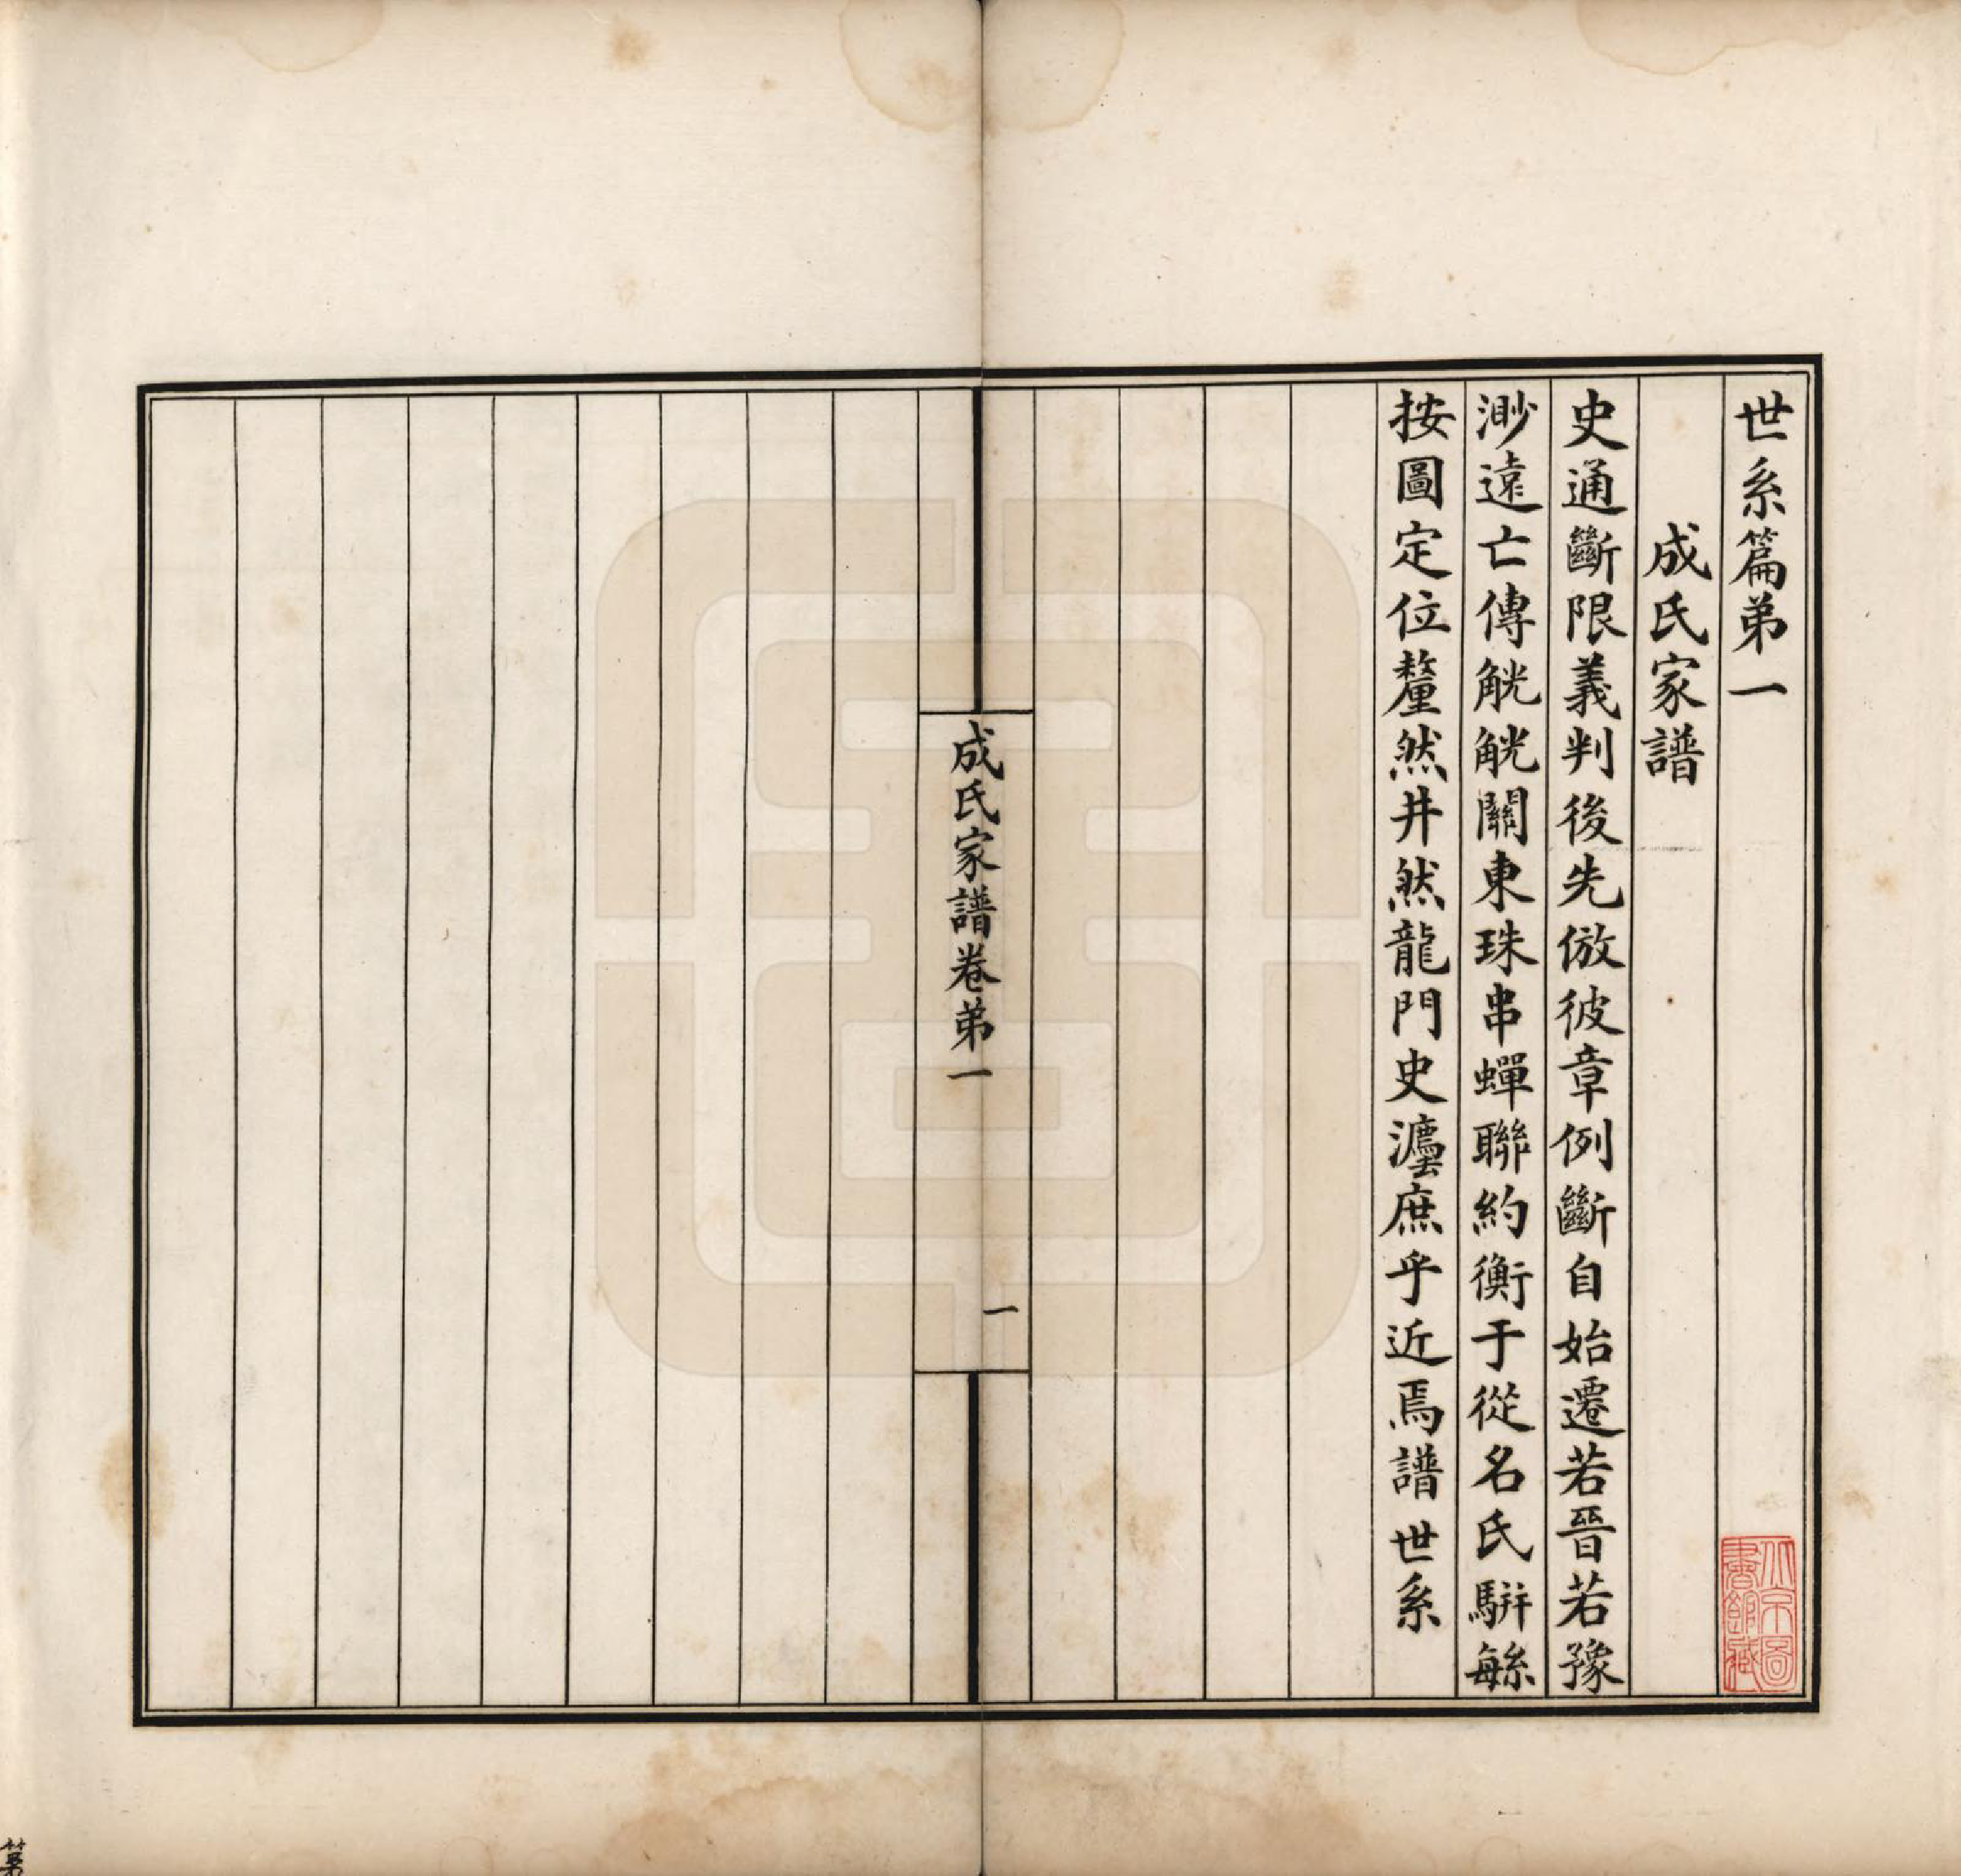 世系篇弟一
成氏家譜
史通斷限義判後先倣彼章例斷自始遷若晉若豫
渺遠亡傳觥觥關東珠串蟬聯約衡于從名氏駢緐
按圖定位釐然井然龍門史瀍庶乎近焉譜世系
成氏家譜卷弟一
一
北京圖書館藏